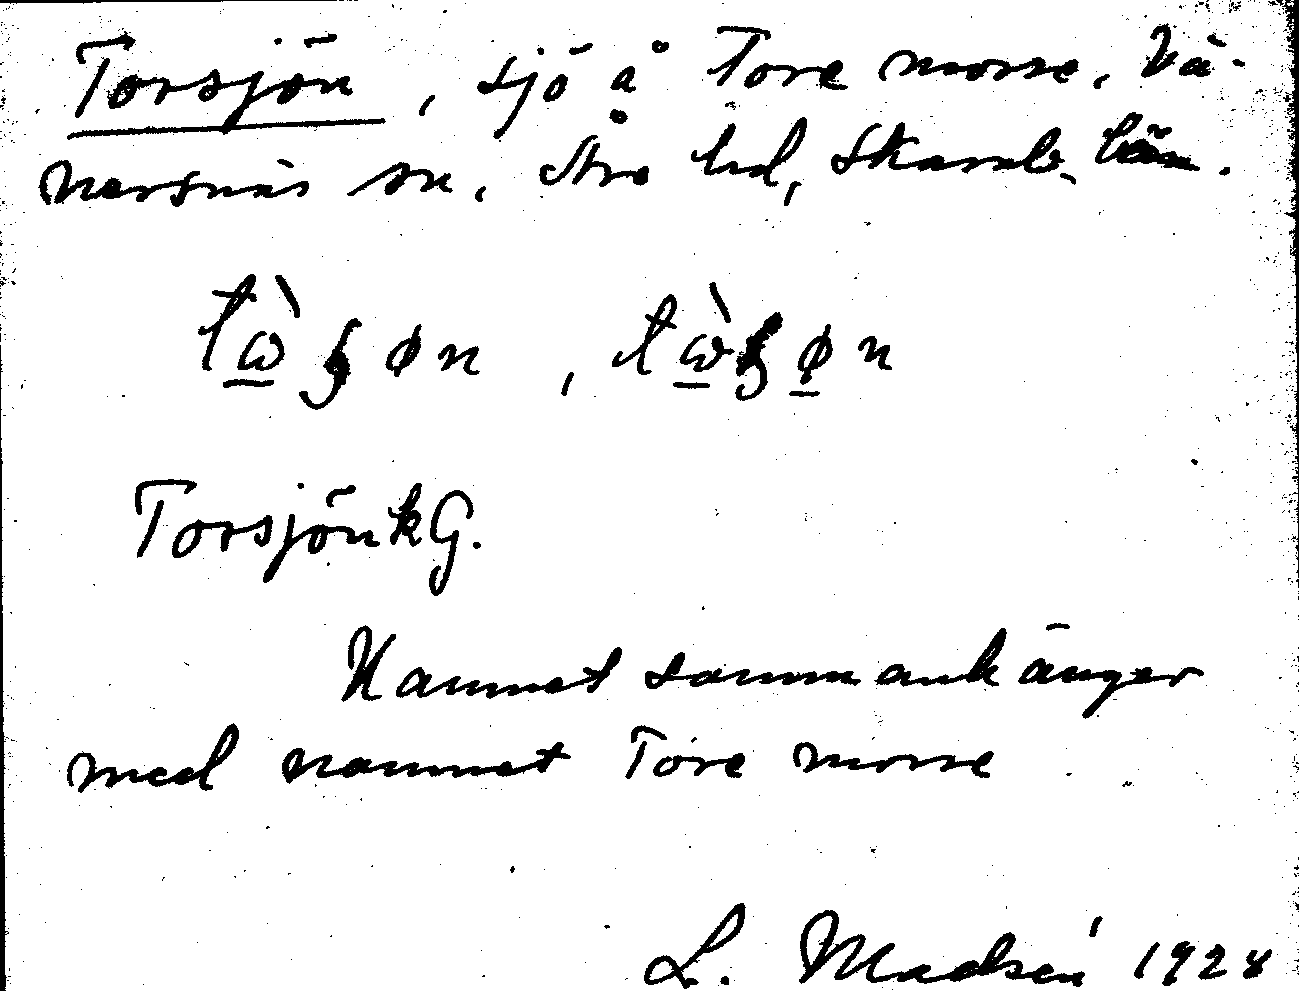 Torsjön, sjö å Tore mosse, Vä-
nersnäs sn, Åse hd, Skarab. län.
tὼ̱ꞩøn, tὼ̱ꞩø̱n
Torsjön kG.
Namnet sammanhänger
med namnet Tore mosse
L. Madsén 1928